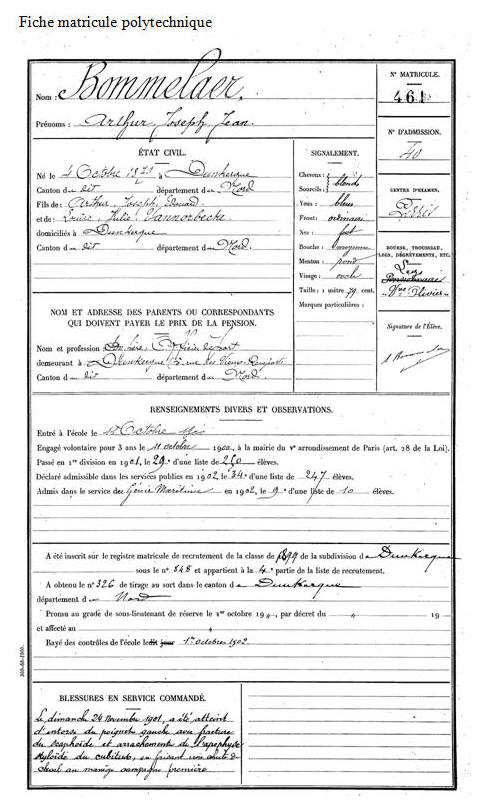 Fiche matricule polytechnique
Nom : Bommelaer,
Prénoms : Arthur Joseph Jean.
N° MATRICULE.
461
N° D'ADMISSION.
40
CENTRE D'EXAMEN,
BOURSE, TROUSSEAU,
LEGS, DÉGRÈVEMENTS, ETC.
Legs
Pensionnaire
Vve Olivier
Signature de l'Élève.
ÉTAT CIVIL.
Né le 4 Octobre 1879 à Dunkerque
Canton de dit département du Nord
Fils de : Arthur, Joseph, Edouard
et de : Louise, Julie Vannorbecke
domiciliés à Dunkerque
Canton de dit département du Nord.
NOM ET ADRESSE DES PARENTS OU CORRESPONDANTS
QUI DOIVENT PAYER LE PRIX DE LA PENSION.
Nom et profession : Son père, Officier de Port
demeurant à Dunkerque rue des Vieux Remparts
Canton de dit département du Nord.
SIGNALEMENT.
Cheveux :
Sourcils : blonds
Yeux : bleus
Front : ordinaire
Nez : fort
Bouche : moyenne
Menton : rond
Visage : ovale
Taille : 1 mètre 79 cent.
Marques particulières :
RENSEIGNEMENTS DIVERS ET OBSERVATIONS.
Entré à l'école le Octobre
Engagé volontaire pour 3 ans le 11 octobre 1900, à la mairie du Ve arrondissement de Paris (art. 28 de la Loi).
Passé en 1re division en 1901, le 29e d'une liste de 250 élèves.
Déclaré admissible dans les services publics en 1902, le 34e d'une liste de 247 élèves.
Admis dans le service des Génie Maritime en 1902, le 9e d'une liste de 10 élèves.
A été inscrit sur le registre matricule de recrutement de la classe de 1899 de la subdivision de Dunkerque
sous le n° 848 et appartient à la 4e partie de la liste de recrutement.
A obtenu le n° 326 de tirage au sort dans le canton de Dunkerque
département du Nord
Promu au grade de sous-lieutenant de réserve le 1er octobre 19 „, par décret du „ 19
et affecté au „
Rayé des contrôles de l'école ledit jour 1er octobre 1902.
BLESSURES EN SERVICE COMMANDÉ.
Le dimanche 24 novembre 1901, a été atteint
d'entorse du poignet gauche avec fracture
du scaphoïde et arrachement de l'apophyse
styloïde du cubitus, en faisant une chute de
cheval au manège campagne première